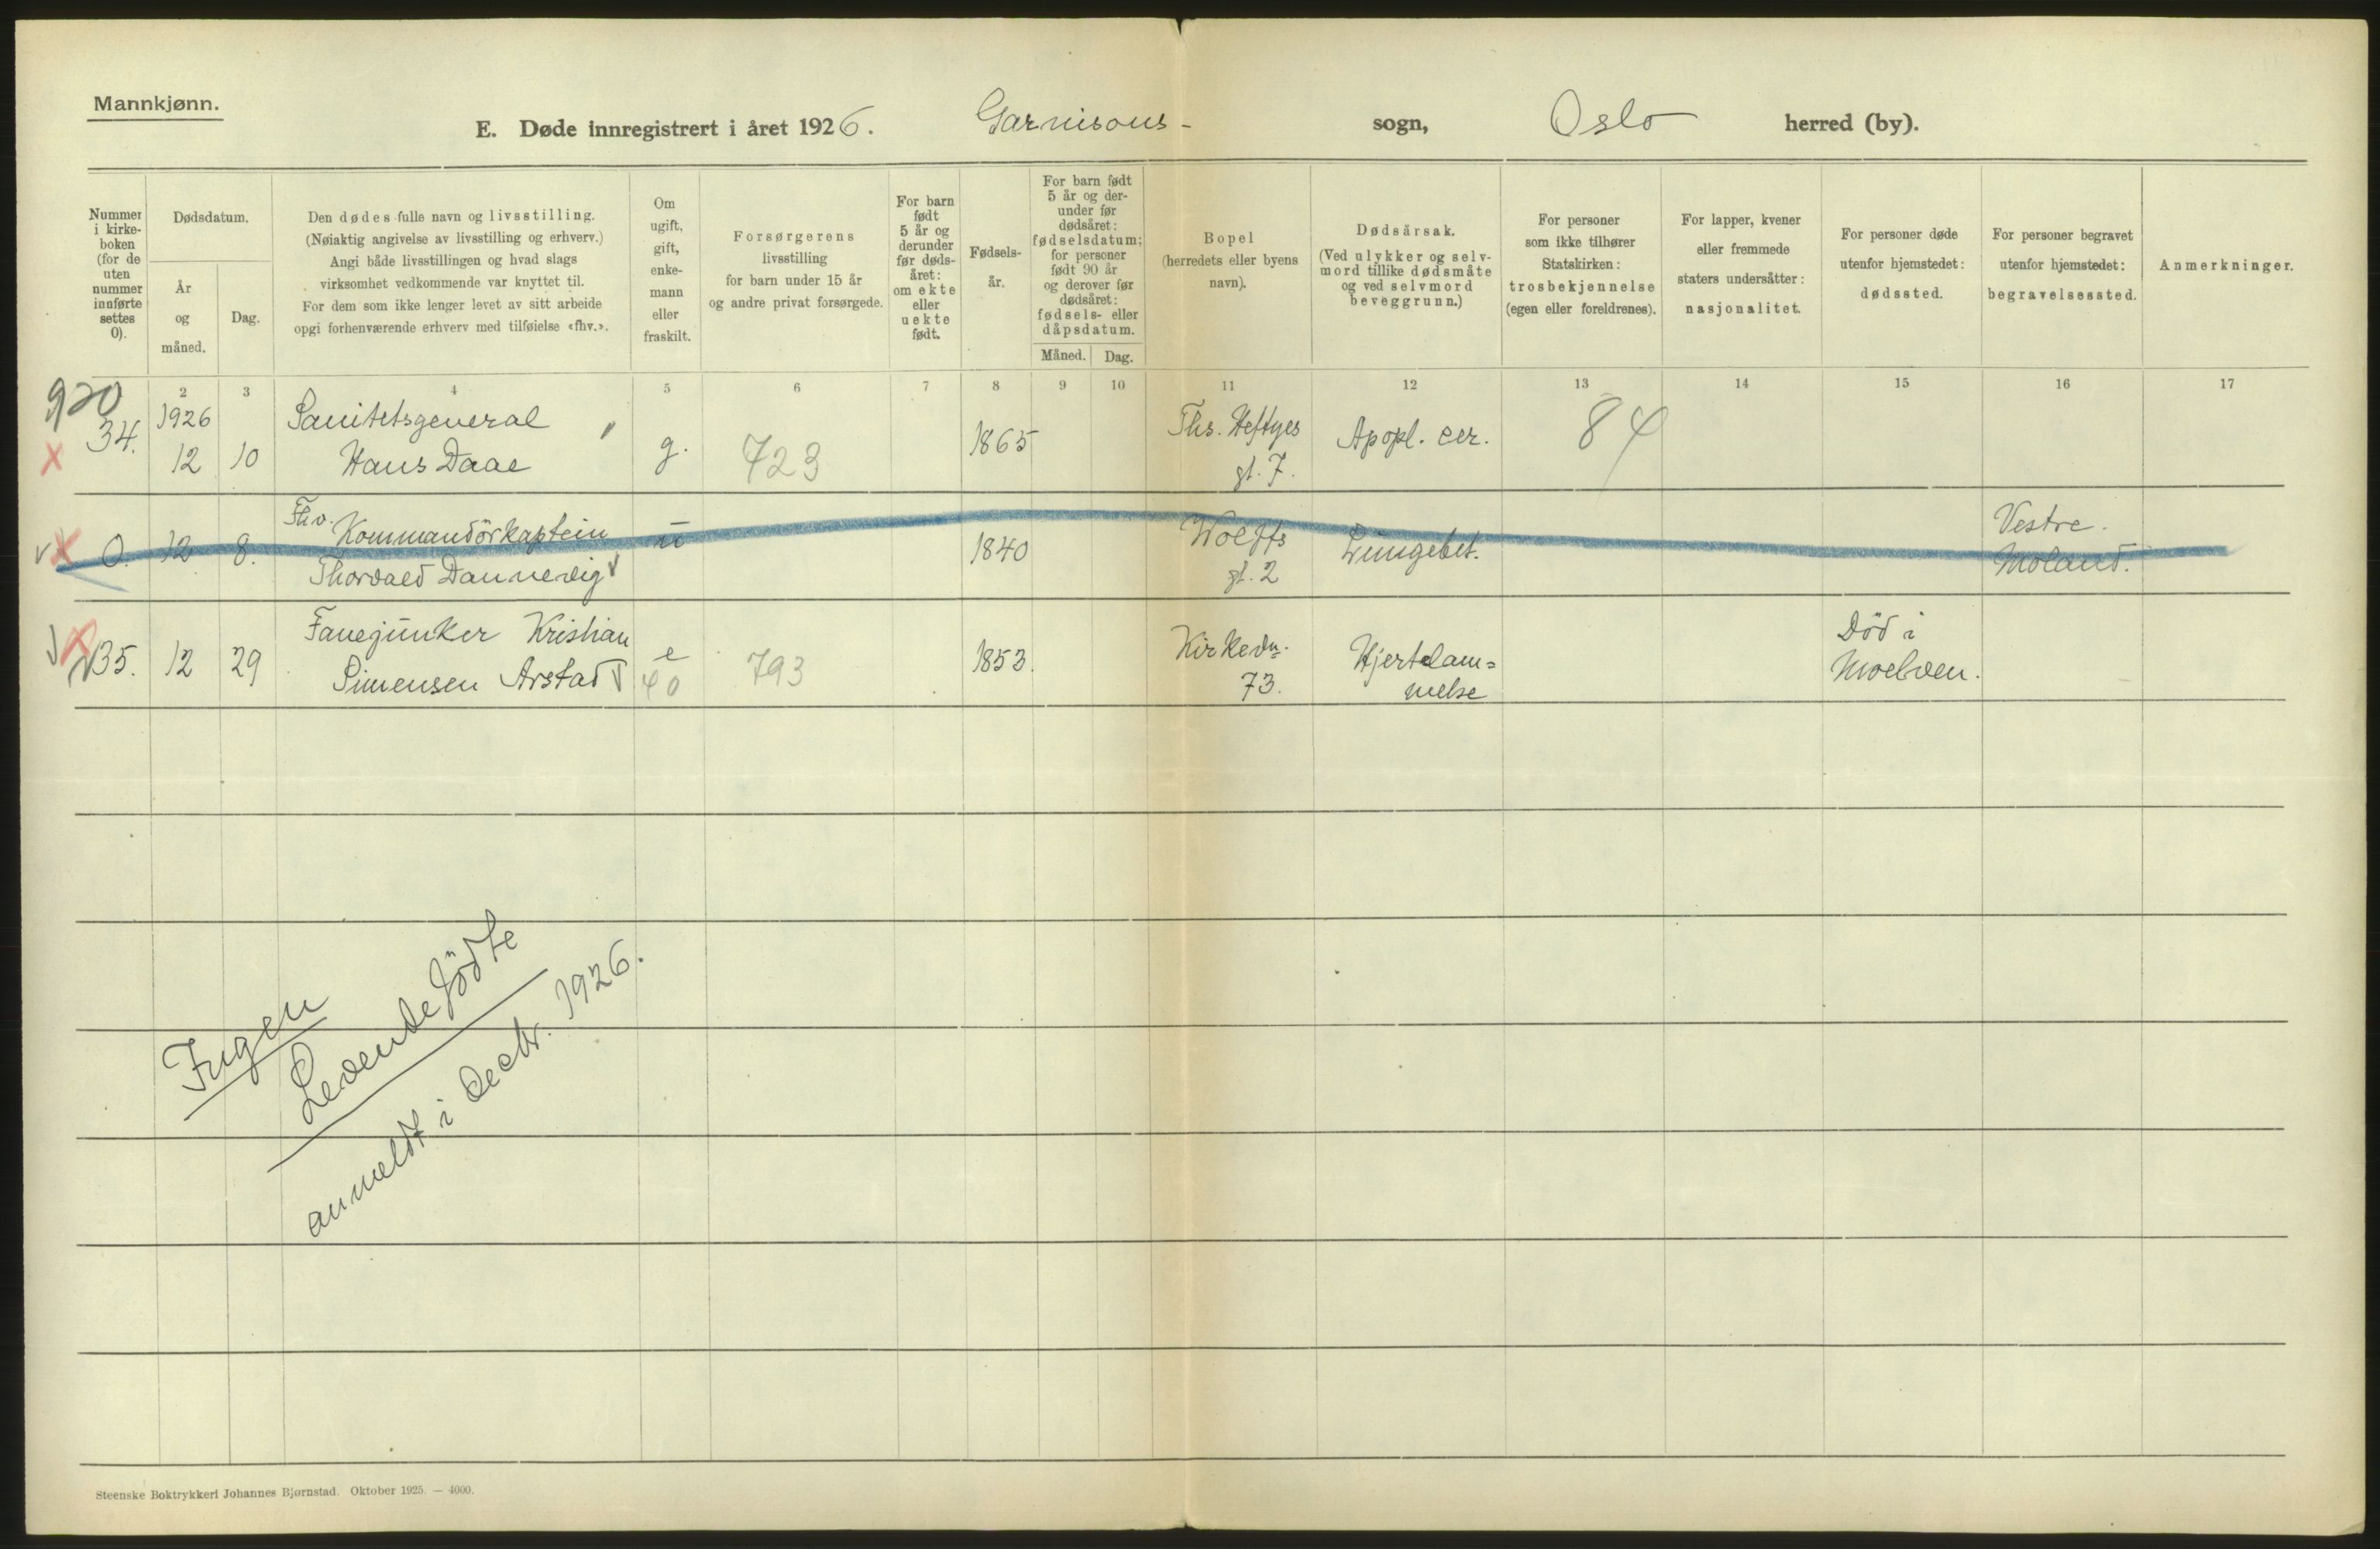 Mannkjønn.
E. Døde innregistrert i året 1926. Garnisons- sogn, Oslo herred (by).
Nummer
i kirke-
boken
(for de
uten
nummer
innførte
settes
0).
Dødsdatum.
År
og
måned.
Dag.
Den dødes fulle navn og livsstilling.
(Nøiaktig angivelse av livsstilling og erhverv.)
Angi både livsstillingen og hvad slags
virksomhet vedkommende var knyttet til.
For dem som ikke lenger levet av sitt arbeide
opgi forhenværende erhverv med tilføielse «fhv.».
Om
ugift,
gift,
enke-
mann
eller
fraskilt.
Forsørgerens
livsstilling
for barn under 15 år
og andre privat forsørgede.
For barn
født
5 år og
derunder
før døds-
året:
om ekte
eller
uekte
født.
Fødsels-
år.
For barn født
5 år og der-
under før
dødsåret:
fødselsdatum;
for personer
født 90 år
og derover før
dødsåret:
fødsels- eller
dåpsdatum.
Måned. Dag.
Bopel
(herredets eller byens
navn).
Dødsårsak.
(Ved ulykker og selv-
mord tillike dødsmåte
og ved selvmord
beveggrunn.)
For personer
som ikke tilhører
Statskirken:
trosbekjennelse
(egen eller foreldrenes).
For lapper, kvener
eller fremmede
staters undersåtter:
nasjonalitet.
For personer døde
utenfor hjemstedet:
dødssted.
For personer begravet
utenfor hjemstedet:
begravelsessted.
Anmerkninger.
2 3 4 5 6 7 8 9 10 11 12 13 14 15 16 17
920
34.
1926
12 10
Sanitetsgeneral
Hans Daae
g.
723
1865
Ths. Heftyes
gt. 7.
Apopl. cer.
84
0. 12. 8.
Fhv. Kommandörkaptein
Thorvald Dannevig
u
1840
Wolffs
gt. 2
Lungebet.
Vestre.
Moland.
35. 12 29
Fanejunker Kristian
Simensen Arstad
e
40
793
1853.
Kirkevn.
73.
Hjertelam=
melse
Död i
Moelven.
Ingen
Levendefödte
anmeldt i Decbr. 1926.
Steenske Boktrykkeri Johannes Bjørnstad. Oktober 1925. — 4000.